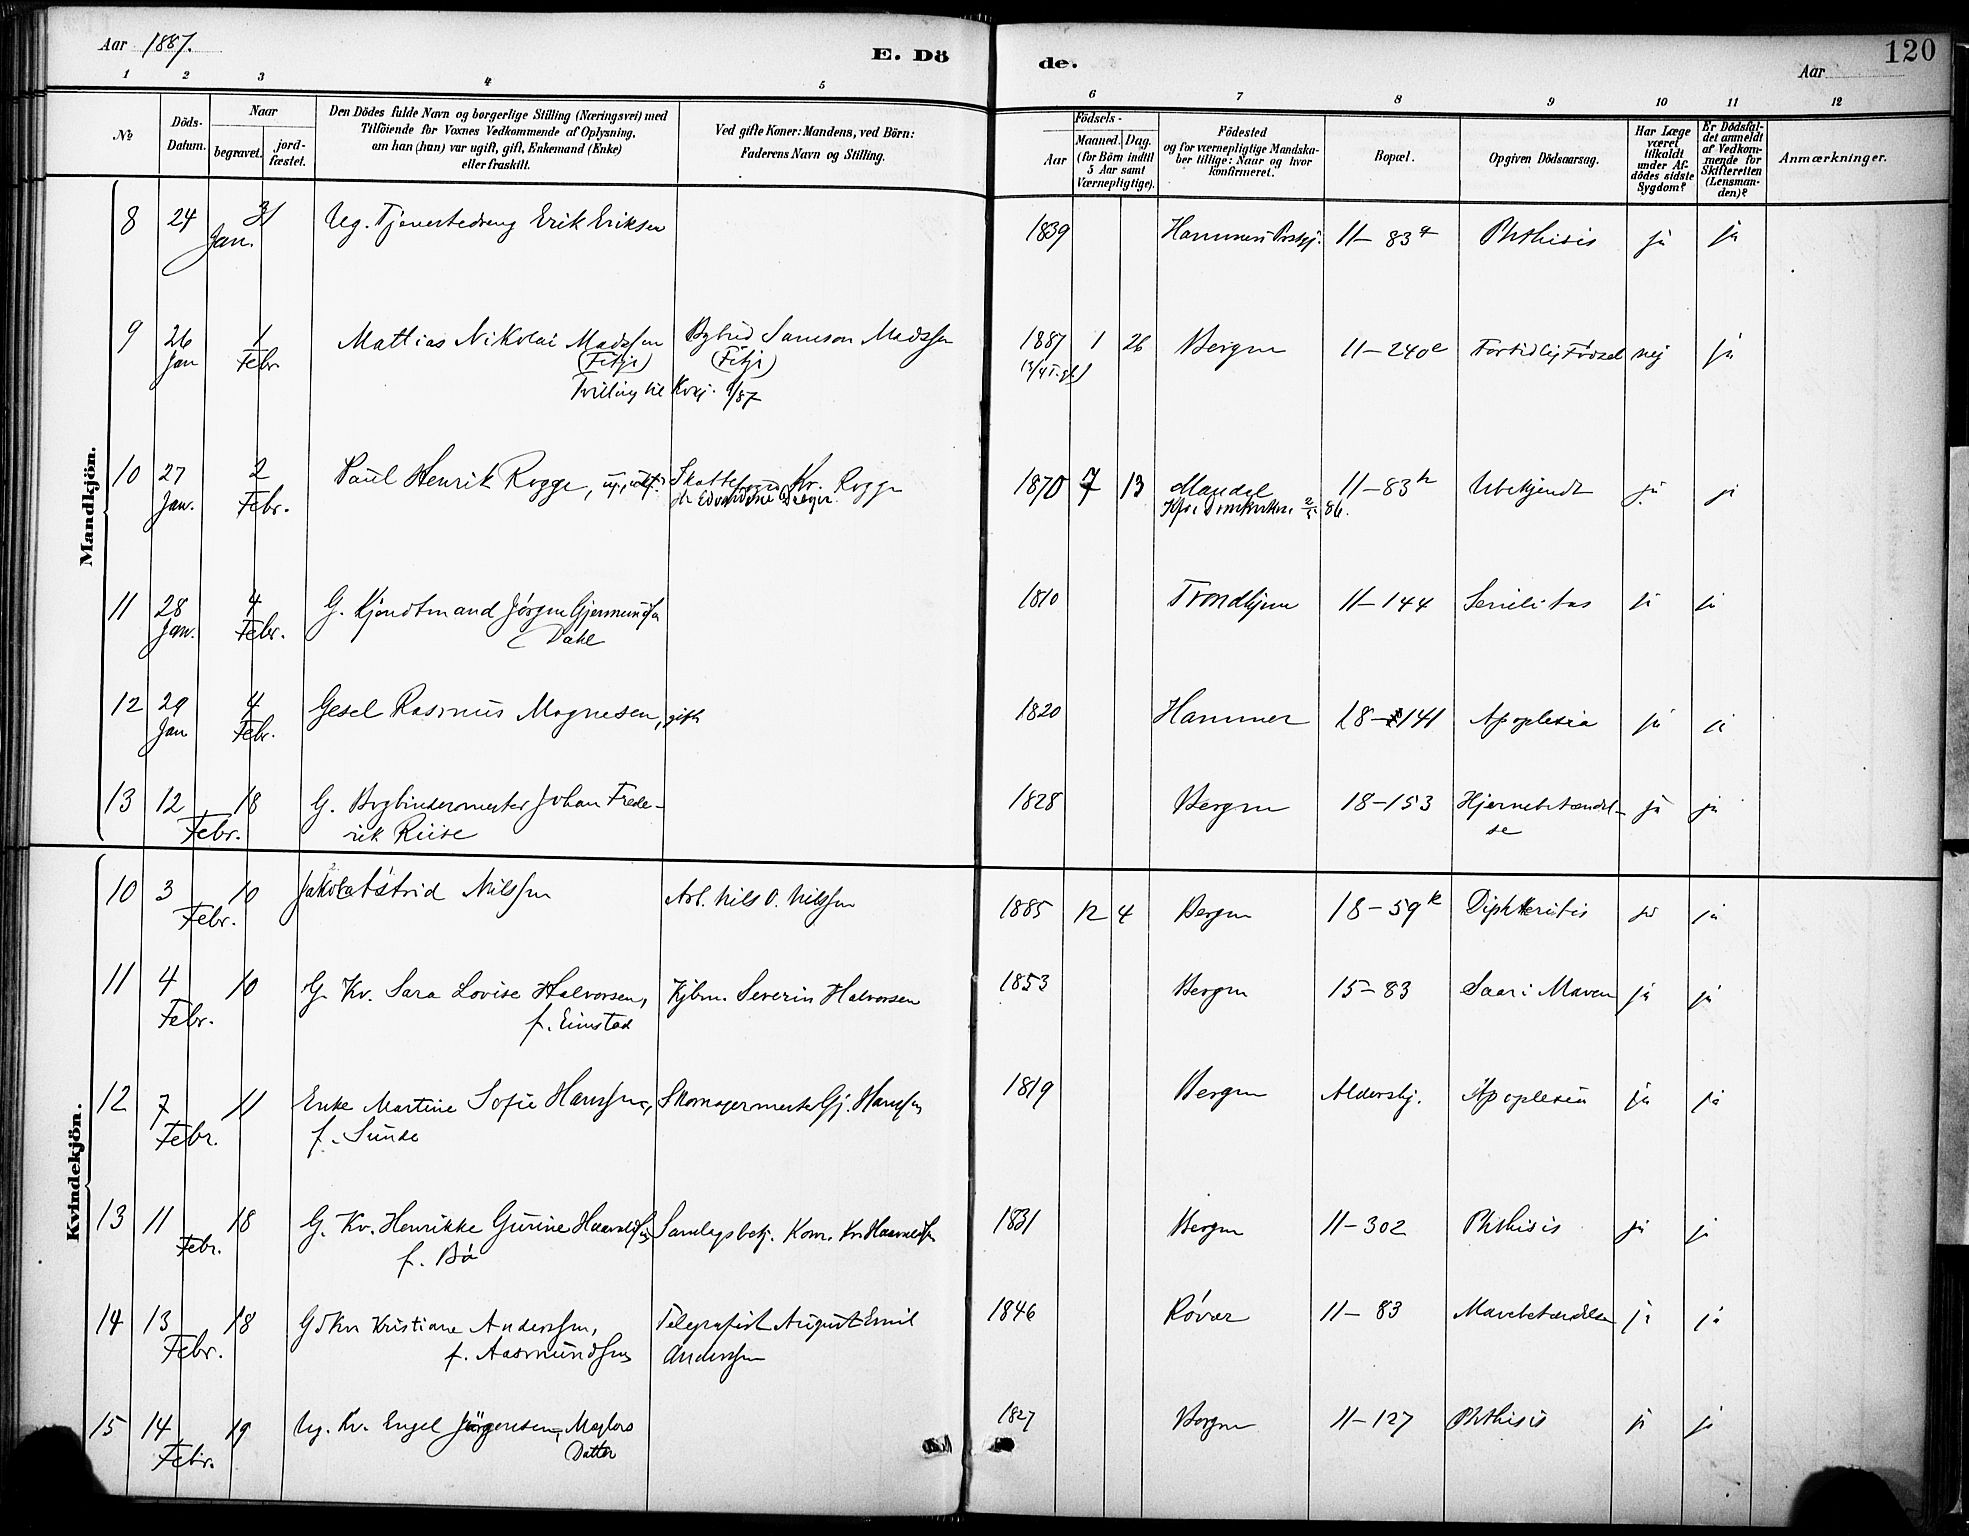 Aar 1887.
E. Dö
de.
Aar
120
1 2 3 4 5 6 7 8 9 10 11 12
No
Döds-
Datum.
Naar
begravet.
jord-
fæstet.
Den Dödes fulde Navn og borgerlige Stilling (Næringsvei) med
Tilföiende for Voxnes Vedkommende af Oplysning,
om han (hun) var ugift, gift, Enkemand (Enke)
eller fraskilt.
Ved gifte Koner: Mandens, ved Börn:
Faderens Navn og Stilling.
Födsels-
Aar
Maaned. Dag.
(for Börn indtil
5 Aar samt
Værnepligtige).
Födested
og for værnepligtige Mandska-
ber tillige: Naar og hvor
konfirmeret.
Bopæl.
Opgiven Dödsaarsag.
Har Læge
været
tilkaldt
under Af-
dödes sidste
Sygdom?
Er Dödsfal-
det anmeldt
af Vedkom-
mende for
Skifteretten
(Lensman-
den)?
Anmærkninger.
Mandkjön.
8 24 31 Ug. Tjenestedreng Erik Eriksen 1839 Hammers Prstgj. 11-83 Phthisis ja ja
Jan.
9 26 1 Mattias Nikolai Madssen Samson Madssen 1887 1 26 Bergen 11-240 e Fortidlig Fødsel nej ja
Jan Febr. (Fitje) (Fitje)
Tvilling til Kvkj. 9/87
10 27 2 Paul Henrik Rogge, Kr. Rogge 1870 7 13 Mandal 11-83 h Ubekjendt ja ja
Jan. Febr. 86.
11 28 4 G. Kjøndtmand Jørgen Gjermundsen 1810 Trondhjem 11-144 Senilitas ja ja
Jan. Febr. Dahl
12 29 4 Gesel Rasmus Magnesen, gift 1820 Hammer 18-141 Apoplexia ja ja
Jan Febr.
13 12 18 G. Bogbindermester Johan Frede- 1828 Bergen 18-153 Hjernebetændel- ja ja
Febr. rik Riise se
Kvindekjön.
10 3 10 Nilssen Arb. Nils O. Nilssen 1885 12 4 Bergen 18-59 k Diphteritis ja ja
Febr.
11 4 10 G. Kv. Sara Lovise Halvorsen, Kjbm. Severin Halvorsen 1853 Bergen 15-83 Saar i Maven ja ja
Febr. f. Eimstad
12 7 11 Enke Martine Sofie Hanssen, Skomagermester Gj. Hanssen 1819 Bergen Aldershj. Apoplexia ja ja
Febr. f. Sunde
13 11 18 G. Kv. Henrikke Gurine Haavaldsen Samlagsbetj. Kom. Kr. Haavaldsen 1831 Bergen 11-302 Phthisis ja ja
Febr. f. Bö
14 13 18 G Kv Kristiane Anderssen, Telegrafist August Emil 1846 Røvær 11-83 Mavebetændelse ja ja
Febr. f. Aasmundsen Anderssen
15 14 19 Ug. Kv. Engel Jörgensen, Mæglers 1827 Bergen 11-127 Phthisis ja ja
Febr. Datter